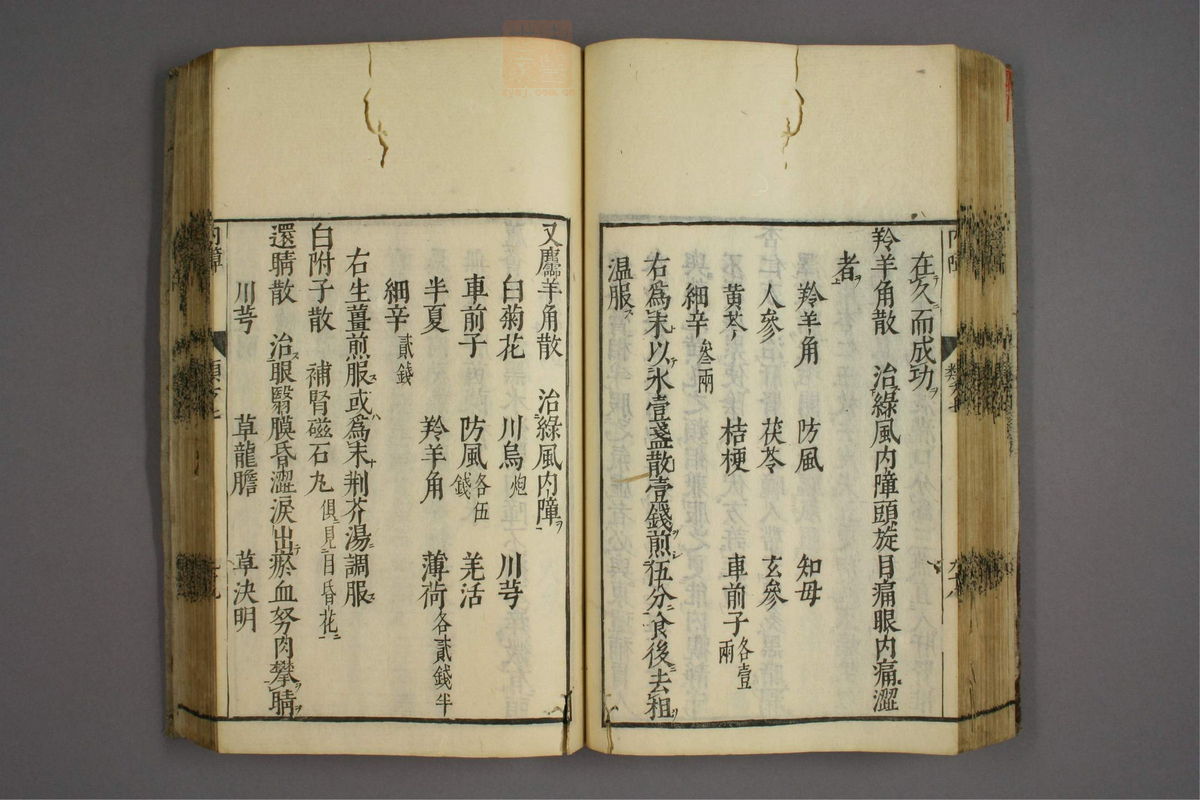 在久而成功
羚羊角散　治綠風内障頭旋目痛眼内痛澀
者
羚羊角　防風　知母
人參　茯苓　玄參
黄芩　桔梗　車前子各壹兩
細辛叁兩
右爲末以水壹盞散壹錢煎伍分食後去粗
温服
又羚羊角散　治綠風内障
白菊花　川烏炮　川芎
車前子　防風各伍錢　羌活
半夏　羚羊角　薄荷各貳錢半
細辛貳錢
右生薑煎服或爲末荆芥湯調服
白附子散　補腎磁石丸俱見目昏花
還睛散　治眼翳膜昏澀淚出瘀血努肉攀睛
川芎　草龍膽　草決明